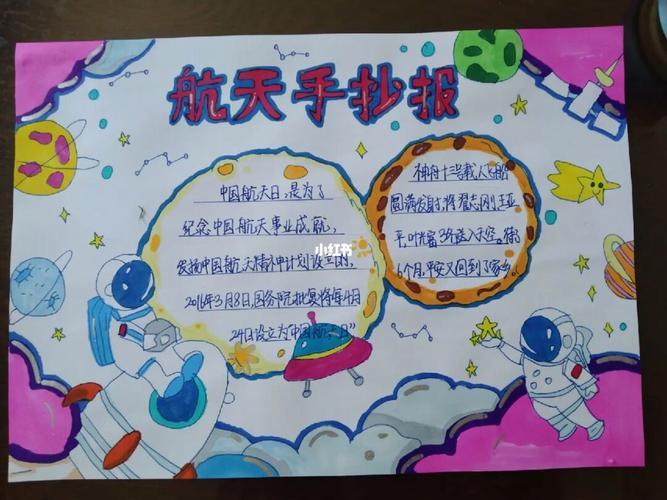 航天手抄报
中国航天日，是为了
纪念中国航天事业成就，
发扬中国航天精神计划设立的，
2016年3月8日，国务院批复将每4月
24日设立为"中国航天日"
神舟十三号载人飞船
圆满发射将翟志刚、王亚
平、叶光富3名送入太空。待
6个月，平安又回到了家乡。
小红书